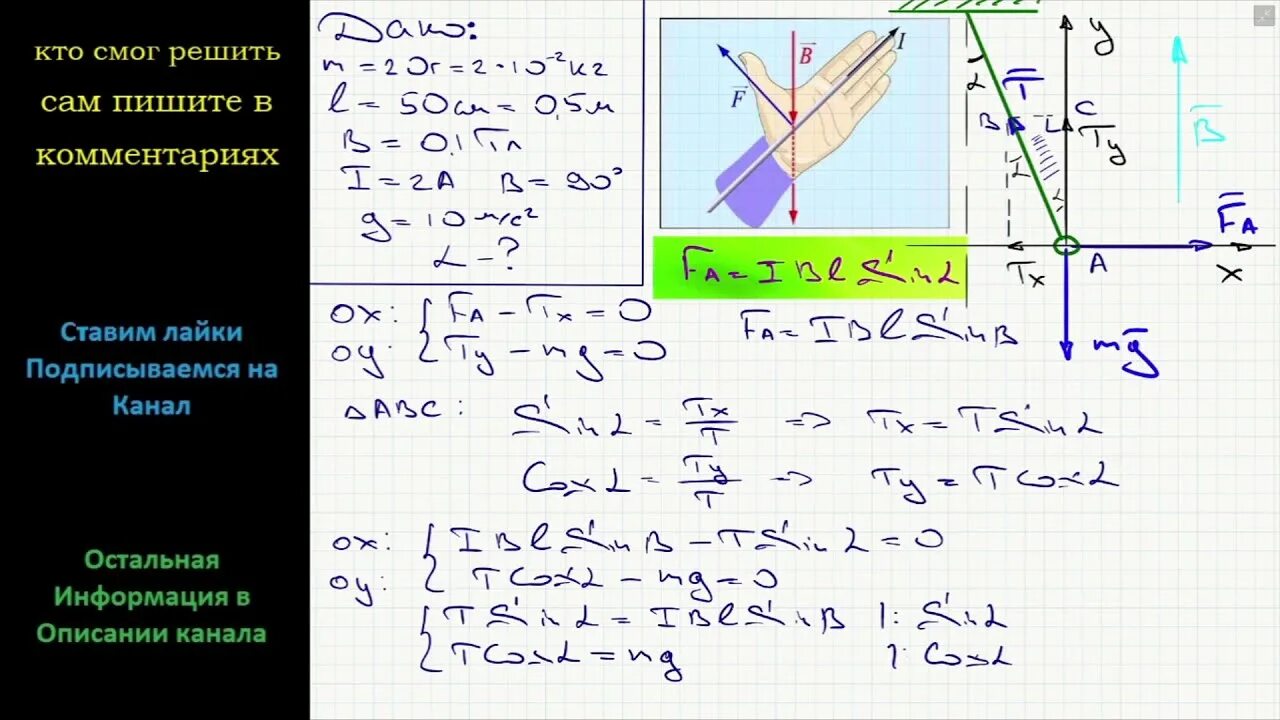 кто смог решить
сам пишите в
комментариях
Ставим лайки
Подписываемся на
Канал
Остальная
Информация в
Описании канала
Дано:
m = 20г = 2·10⁻² кг
l = 50см = 0,5м
B = 0,1 Тл
I = 2А   B = 90°
g = 10 м/с²
α - ?
F
B
I
F_A = I B l Sin α
α
T
B
I
L
α
C
T_y
y
B
F_A
T_x
A
x
mg
ox: { F_A - T_x = 0
oy: { T_y - mg = 0
F_A = I B l Sin B
△ABC: Sin α = T_x/T => T_x = T Sin α
Cos α = T_y/T => T_y = T Cos α
ox: { I B l Sin B - T Sin α = 0
oy: { T Cos α - mg = 0
{ T Sin α = I B l Sin B |: Sin α
{ T Cos α = mg |: Cos α